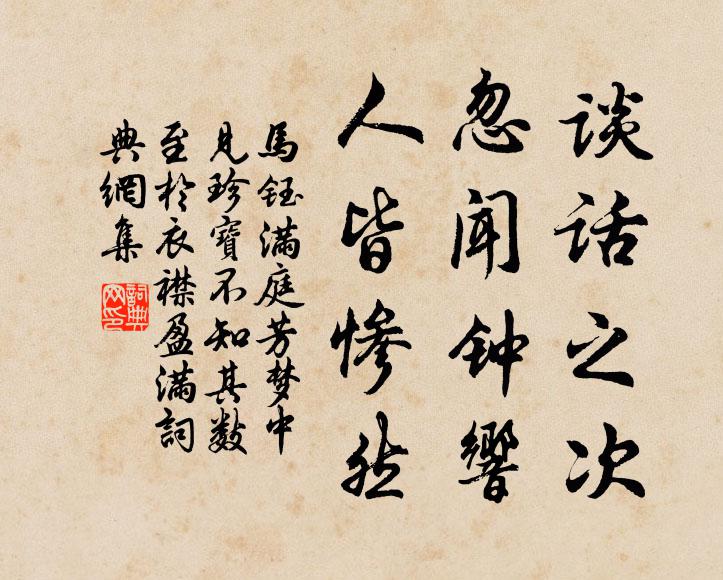 谈话之次
忽闻钟響
人皆惨然
馬鈺滿庭芳梦中
見珍寶不知其数
至於衣襟盈滿詞
典網集
詞典
网印